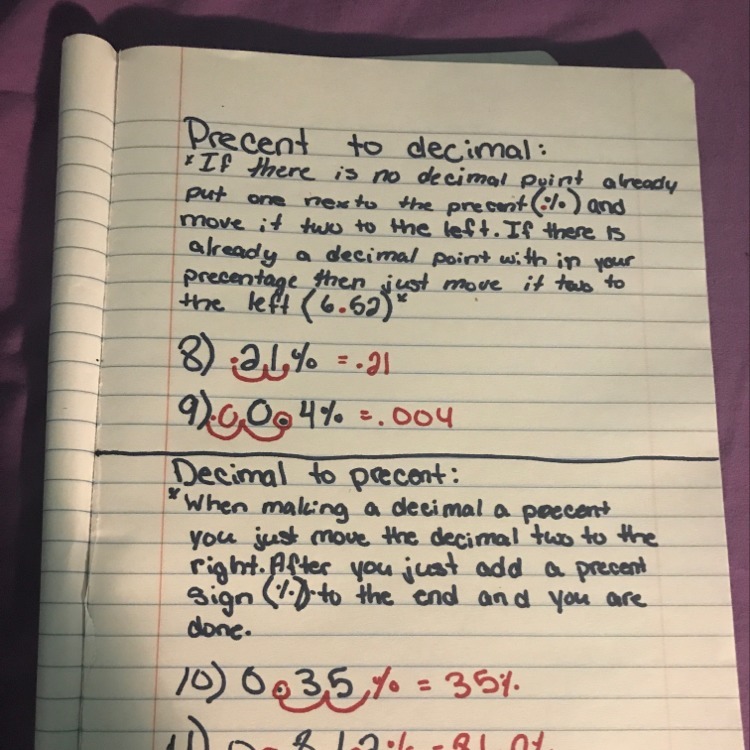 Precent to decimal:
*If there is no decimal point already
put one next to the precent (.%) and
move it two to the left. If there is
already a decimal point with in your
precentage then just move it two to
the left (6.52)*
8) .21.% = .21
9) .00.4% = .004
Decimal to precent:
*When making a decimal a precent
you just move the decimal two to the
right. After you just add a precent
sign (%) to the end and you are
done.
10) 0.35.% = 35%